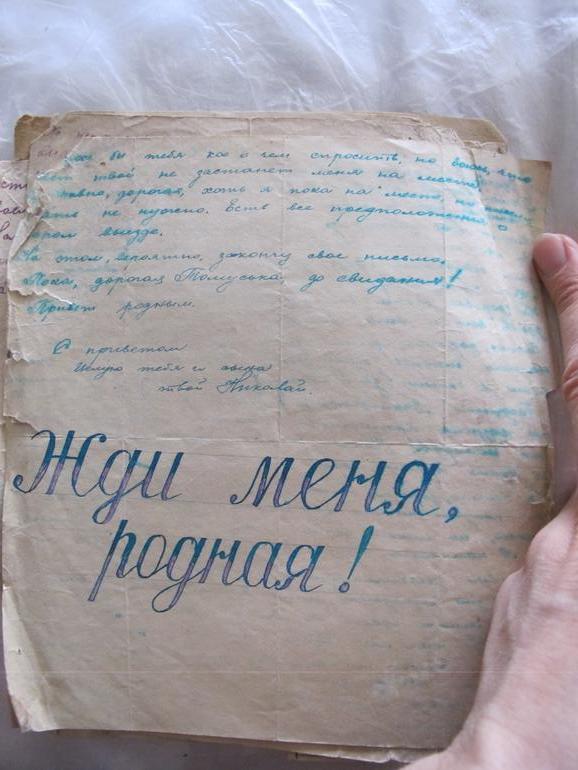 бы тебя кое о чем спросить, но боюсь, что
твой не застанет меня на месте
дорогая, хоть я пока на месте
не нужно. Есть все предположения о
скором выезде.
На этом, вероятно, закончу свое письмо.
Пока, дорогая Томуська до свидания!
Привет родным.
С приветом
Целую тебя и сына
твой Николай.
Жди меня,
родная!